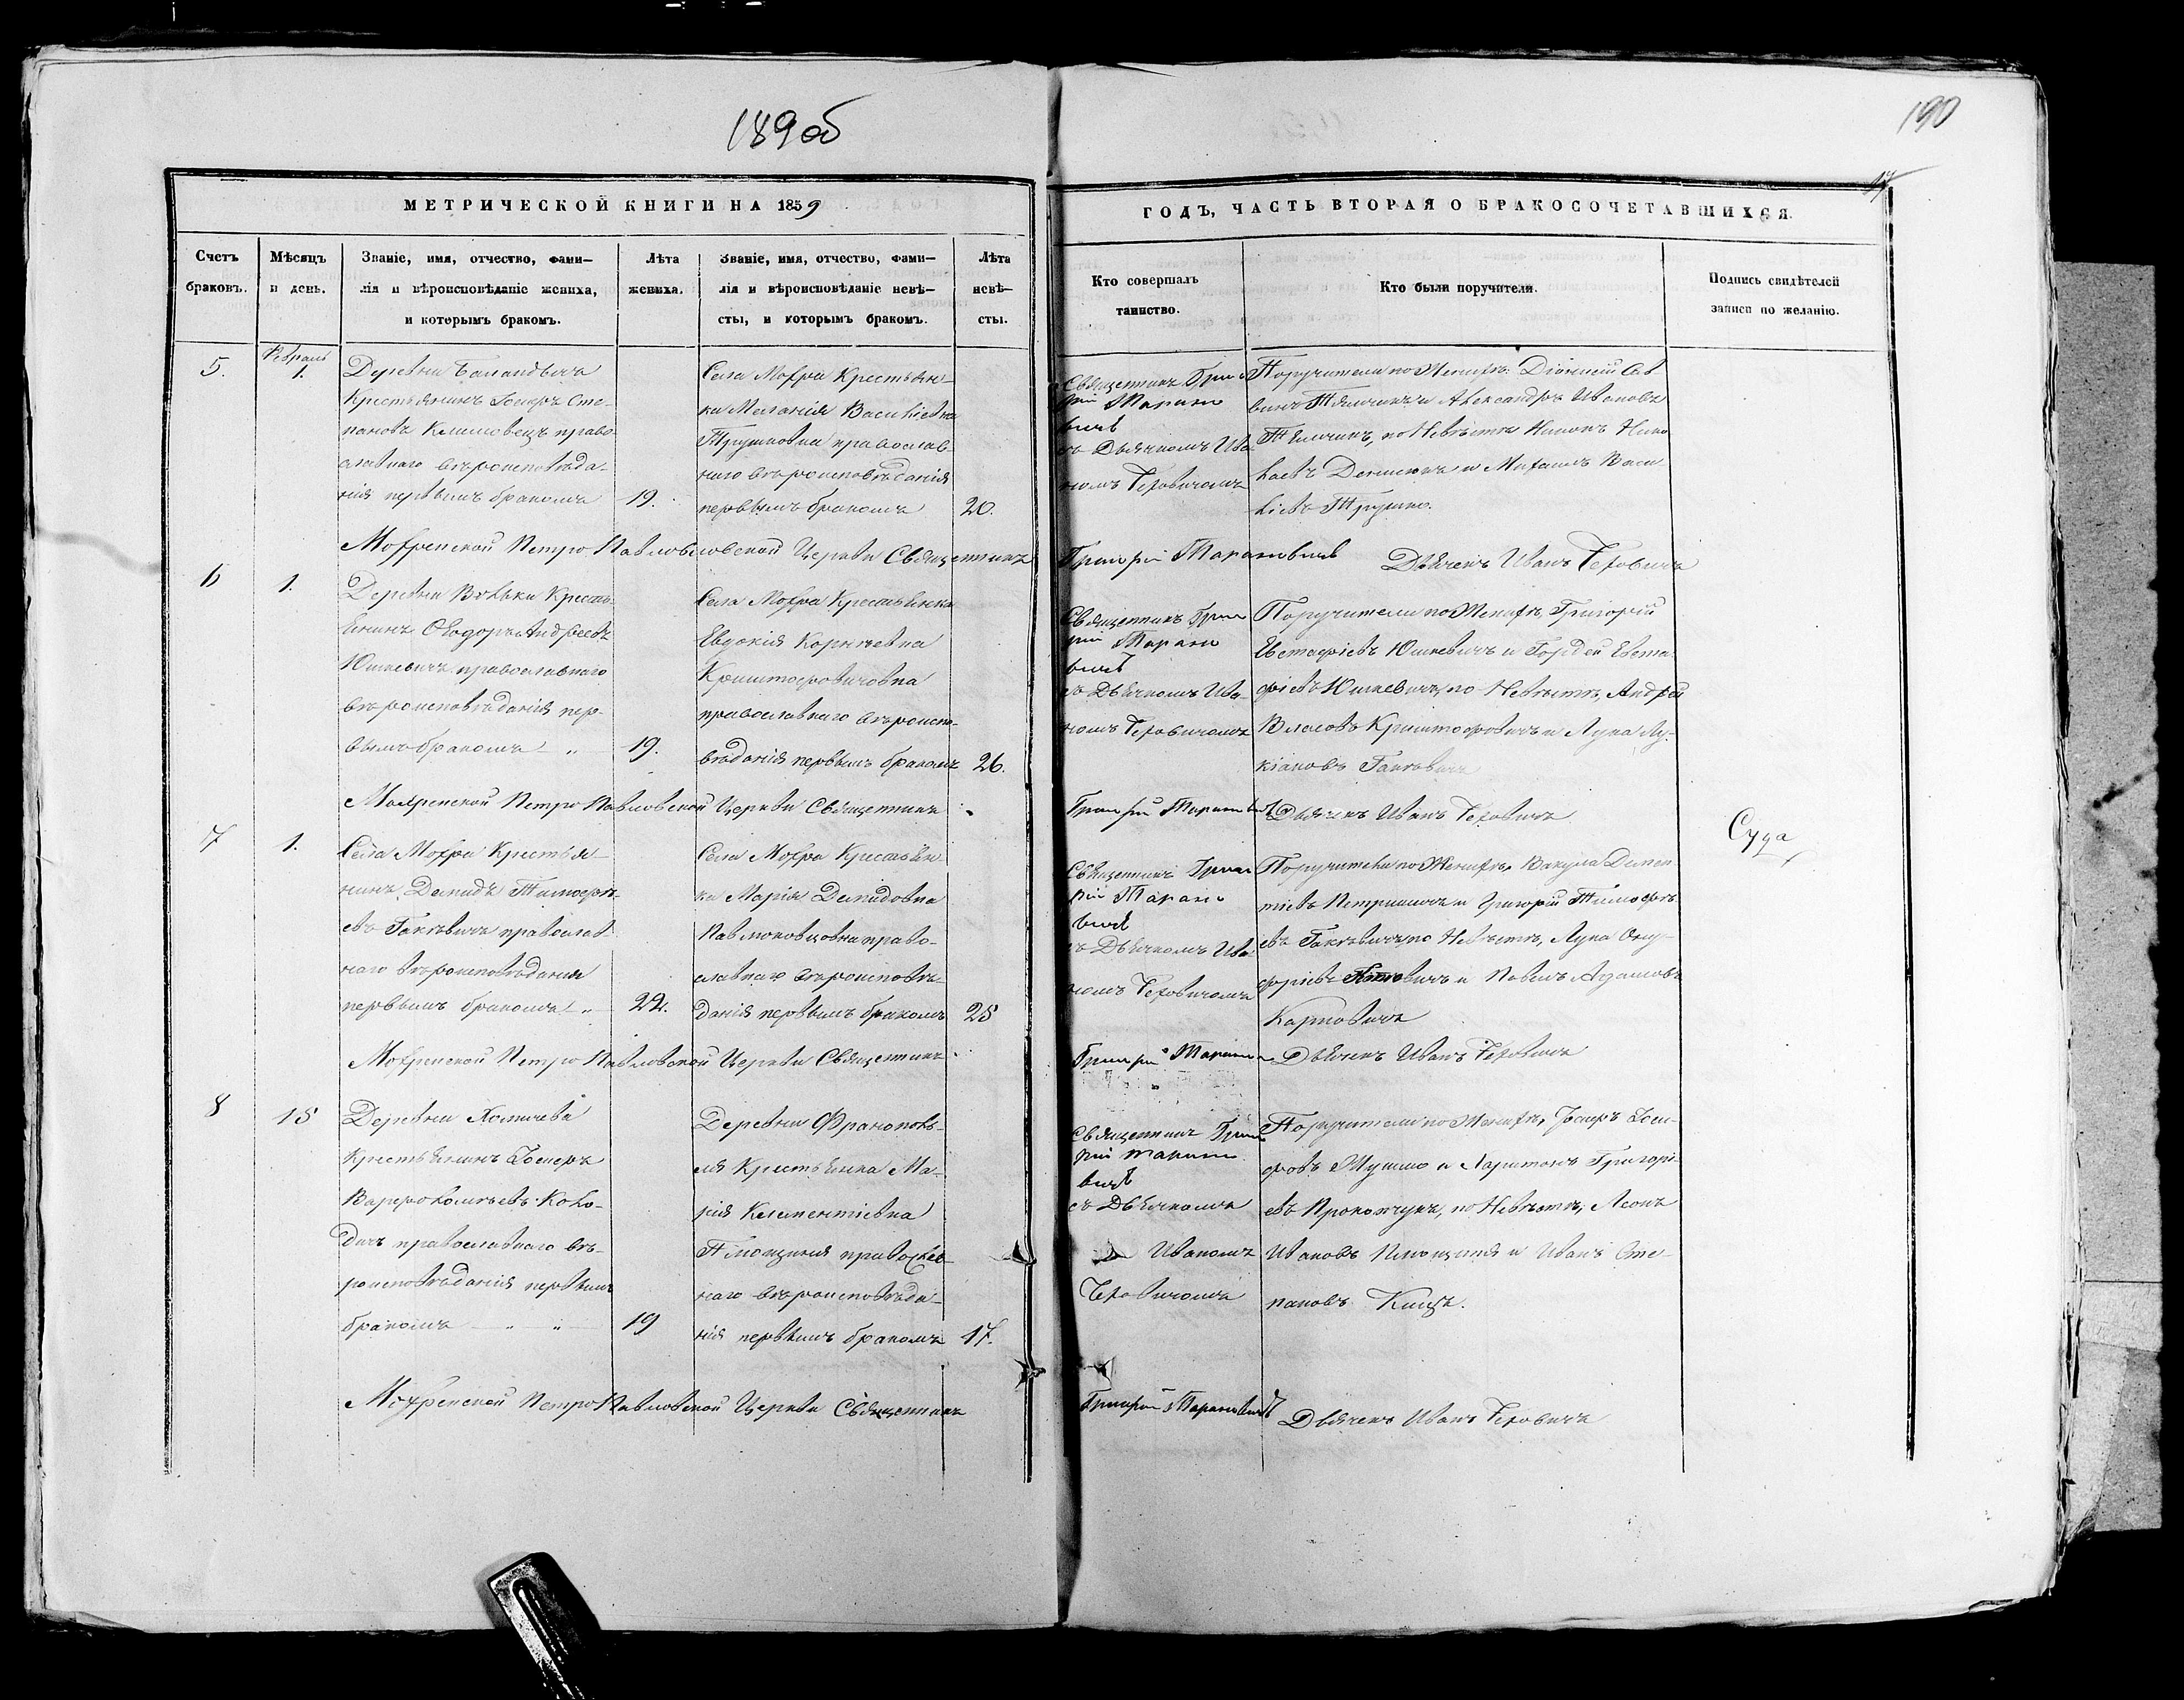 189 об
190
17
МЕТРИЧЕСКОЙ КНИГИ НА 1859
ГОДЪ, ЧАСТЬ ВТОРАЯ О БРАКОСОЧЕТАВШИХСЯ.
Счетъ
браковъ.
Мѣсяцъ
и день.
Званіе, имя, отчество, фами–
лія и вѣроисповѣданіе жениха,
и которымъ бракомъ.
Лѣта
жениха.
Званіе, имя, отчество, фами–
лія и вѣроисповѣданіе невѣ–
сты, и которымъ бракомъ.
Лѣта
невѣ–
сты.
Кто совершалъ
таинство.
Кто были поручители.
Подпись свидѣтелей
записи по желанію.
5.
Февраль
1.
Деревни Баландичъ
Крестьянинъ Іосифъ Сте-
пановъ Климовецъ право-
славнаго вѣроисповѣда-
нія первымъ бракомъ
19.
Села Мохра Крестьян-
ка Меланія Василіевна
Трушковна православ-
наго вѣроисповѣданія
первымъ бракомъ
20.
Священникъ Григо
рій Тарано
вичъ
съ Дьячкомъ Ива
номъ Теховичомъ
Поручители по Женихѣ Діонисій Сав
Александръ Ивановъ
по Невѣстѣ Никонъ Нико
лаевъ Денисюкъ и Михаилъ Васи
ліевъ Трушко.
Мохренской Петро Павловской Церкви Священникъ
Григорій Тарановичъ Дьячекъ Иванъ Теховичъ
6
1.
Деревни Вульки Кресть-
янинъ Ѳеодоръ Андреевъ
Юшкевичъ православнаго
вѣроисповѣданія пер-
вымъ бракомъ „
19.
Села Мохра Крестьянка
Евдокія Корніевна
Криштофовичовна
православнаго вѣроиспо-
вѣданія первымъ бракомъ
26.
Священникъ Григо
рій Тарано
вичъ
съ Дьячкомъ Ива-
номъ Теховичомъ
Поручители по Женихѣ, Григорій
Евстафіевъ Юшкевичъ и Гордей Евста-
фіевъ Юшкевичъ, по Невѣстѣ, Андрей
Власовъ Криштофовичъ и Лука Лу-
кіановъ Гацкевичъ
Мохренской Петро Павловской Церкви Священникъ
Григорій Тарановичъ Дьячекъ Иванъ Теховичъ
7
1.
Села Мохра Крестья-
нинъ Демидъ Тимофѣ-
евъ Гацкевичъ православ-
наго вѣроисповѣданія
первымъ бракомъ „
22.
Села Мохра Крестьян-
ка Марія Демидовна
Павлюковцовна право-
славнаго вѣроисповѣ-
данія первымъ бракомъ
25
Священникъ Григо
рій Тарано
вичъ
съ Дьячкомъ Ива
номъ Теховичомъ
Поручители по Женихѣ, Вакула Демен
тіевъ и Григорій Тимофѣ
евъ Гацкевичъ, по Невѣстѣ, Лука Ону-
фріевъ и Павелъ Адамовъ
Карповичъ
Суда
Мохренской Петро Павловской Церкви Священникъ
Григорій Тарано Дьячекъ Иванъ Теховичъ
8
15
Деревни Хомичева
Крестьянинъ Іосифъ
Варфоломѣевъ Коло-
дичъ православнаго вѣ-
роисповѣданія первымъ
бракомъ „ „
19
Деревни Франополь-
ля Крестьянка Ма-
рія Клементіевна
православ-
наго вѣроисповѣда-
нія первымъ бракомъ
17.
Священникъ Григо
рій Тарано
вичъ
съ Дьячкомъ
Иваномъ
Теховичомъ
Поручители по Женихѣ, Іосифъ Іоси-
фовъ и Харитонъ Григорі-
евъ Прокопчукъ, по Невѣстѣ, Леонъ
Ивановъ и Иванъ Сте-
пановъ Кицъ.
Мохренской Петро Павловской Церкви Священникъ
Григорій Тарановичъ Дьячекъ Иванъ Теховичъ